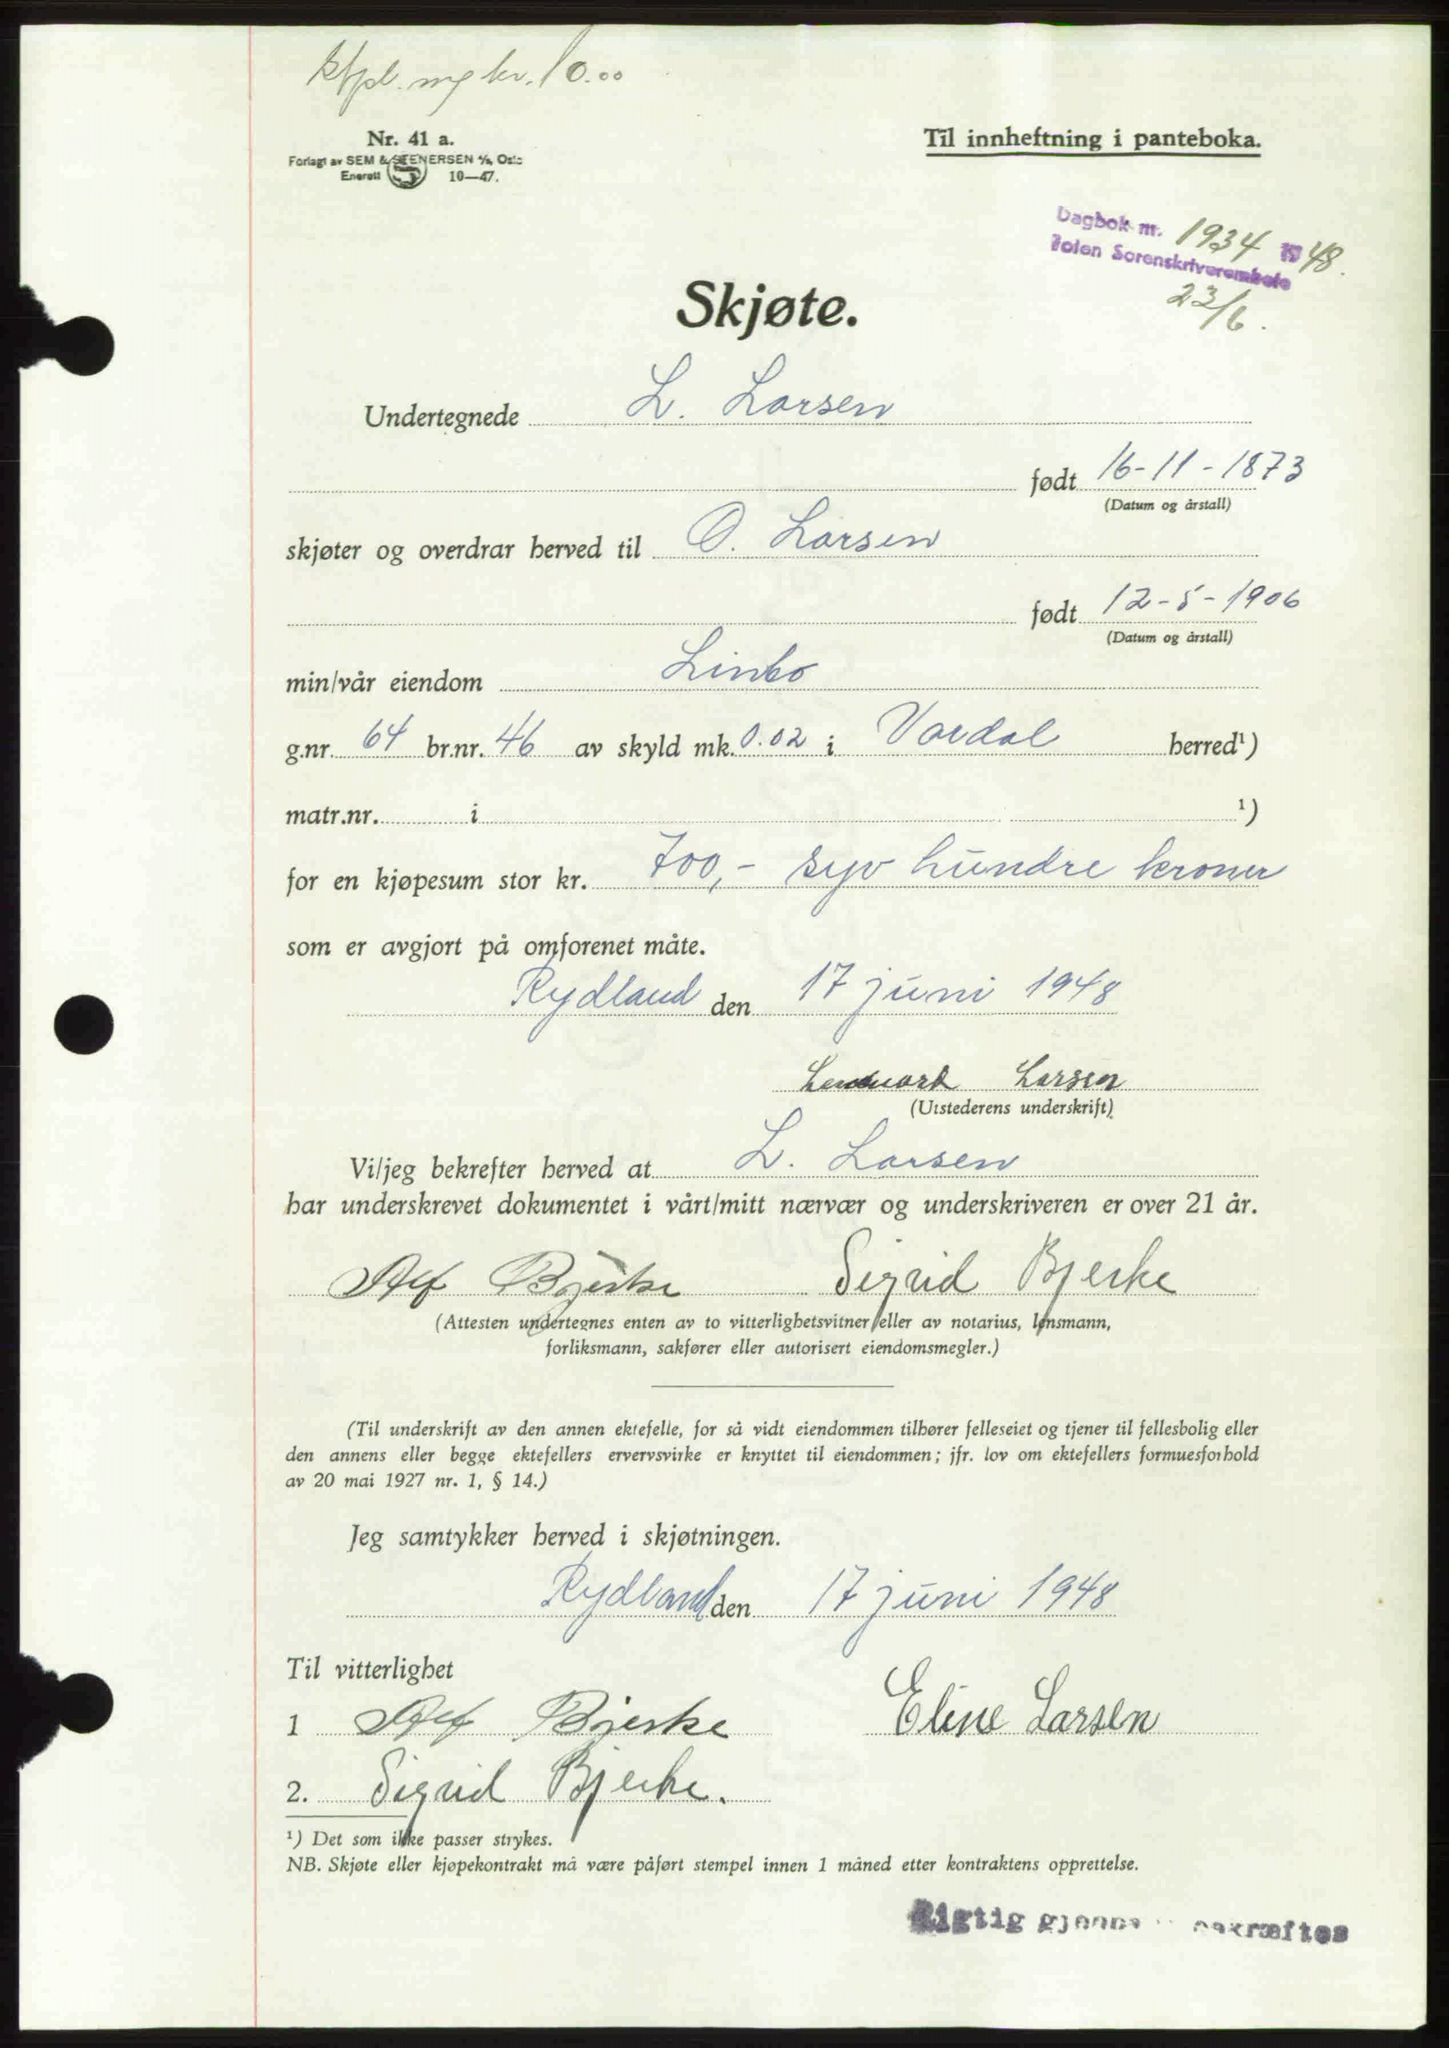 Stpl. mg kr. 10.00
Nr. 41 a.
Forlagt av SEM & STENERSEN A/S, Oslo
Enerett 10—47.
Til innheftning i panteboka.
Dagbok nr. 1934 1948.
Toten Sorenskriverembete
23/6.
Skjøte.
Undertegnede L. Larsen
født 16-11-1873
(Datum og årstall)
skjøter og overdrar herved til O. Larsen
født 12-5-1906
(Datum og årstall)
min/vår eiendom Linbo
g.nr. 64 br.nr. 46 av skyld mk. 0.02 i Vardal herred¹)
matr.nr. i ¹)
for en kjøpesum stor kr. 700,- syv hundre kroner
som er avgjort på omforenet måte.
Rydland den 17 juni 1948
Larsen
(Utstederens underskrift)
Vi/jeg bekrefter herved at L. Larsen
har underskrevet dokumentet i vårt/mitt nærvær og underskriveren er over 21 år.
Alf Bjerke Sigrid Bjerke
(Attesten undertegnes enten av to vitterlighetsvitner eller av notarius, lensmann,
forliksmann, sakfører eller autorisert eiendomsmegler.)
(Til underskrift av den annen ektefelle, for så vidt eiendommen tilhører felleseiet og tjener til fellesbolig eller
den annens eller begge ektefellers ervervsvirke er knyttet til eiendommen; jfr. lov om ektefellers formuesforhold
av 20 mai 1927 nr. 1, § 14.)
Jeg samtykker herved i skjøtningen.
Rydland den 17 juni 1948
Til vitterlighet
1 Alf Bjerske Eline Larsen
2. Sigrid Bjerke.
¹) Det som ikke passer strykes.
NB. Skjøte eller kjøpekontrakt må være påført stempel innen 1 måned etter kontraktens opprettelse.
Rigtig